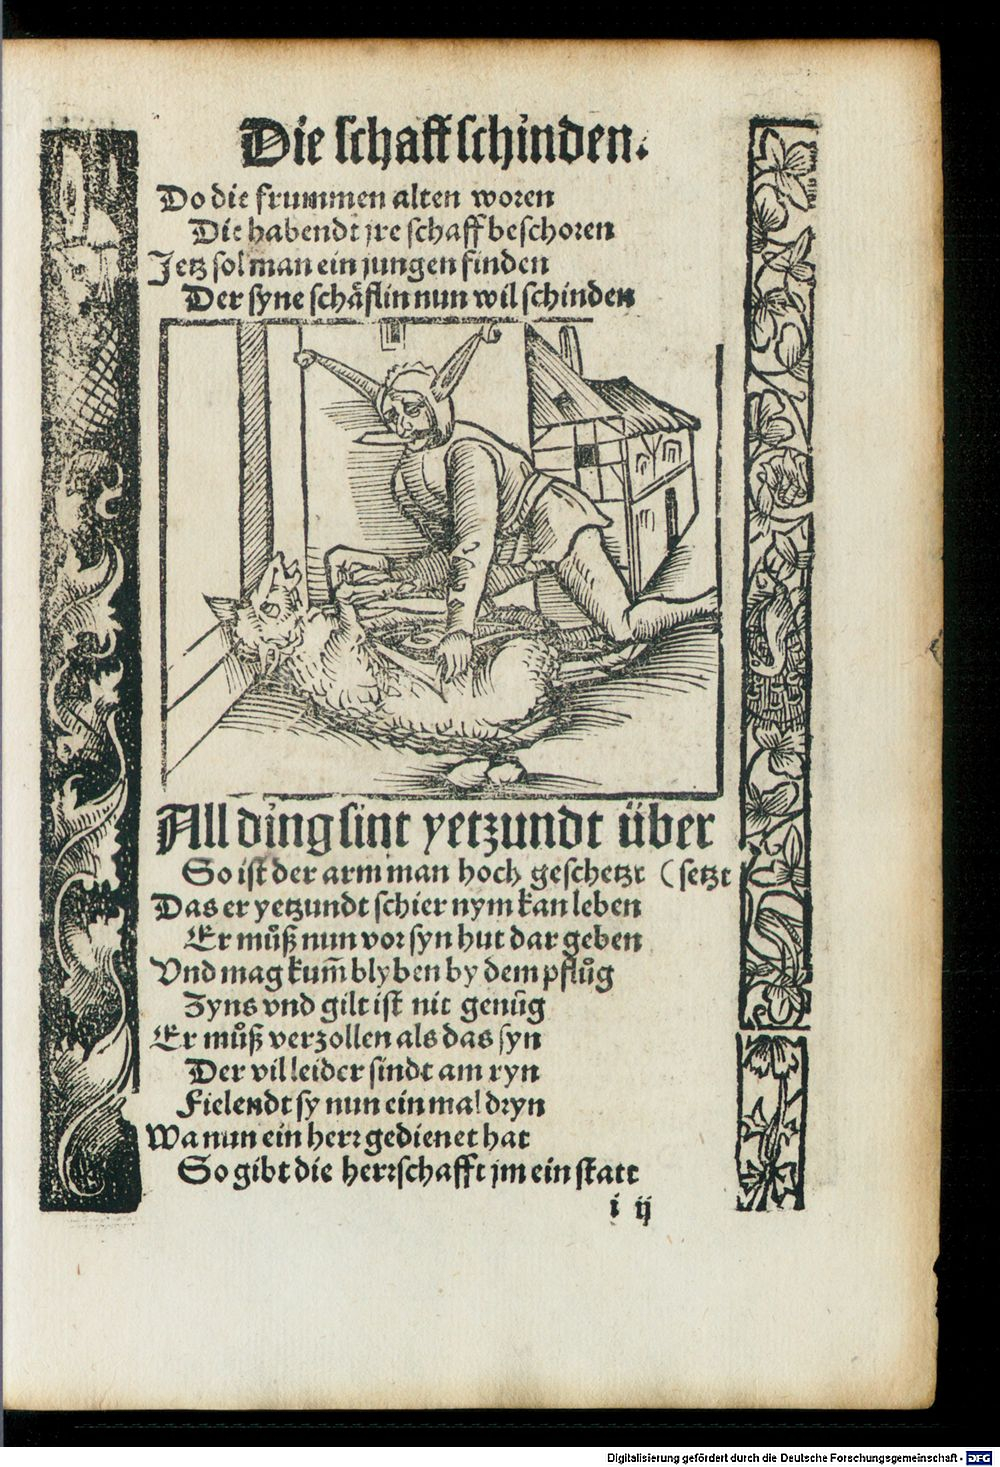 Die schaff schinden.
Do die frummen alten woren
Die habendt jre schaff beschoren
Jetz sol man ein jungen finden
Der syne schäflin nun wil schinden
All ding sint yetzundt über
So ist der arm man hoch geschetzt (setzt
Das er yetzundt schier nym kan leben
Er můß nun vor syn hut dar geben
Vnd mag kum̄ blyben by dem pflůg
Zyns vnd gilt ist nit genůg
Er můß verzollen als das syn
Der vil leider sindt am ryn
Fielendt sy nun ein mal dryn
Wa nun ein herr gedienet hat
So gibt die herrschafft jm ein statt
i ij
Digitalisierung gefördert durch die Deutsche Forschungsgemeinschaft - DFG